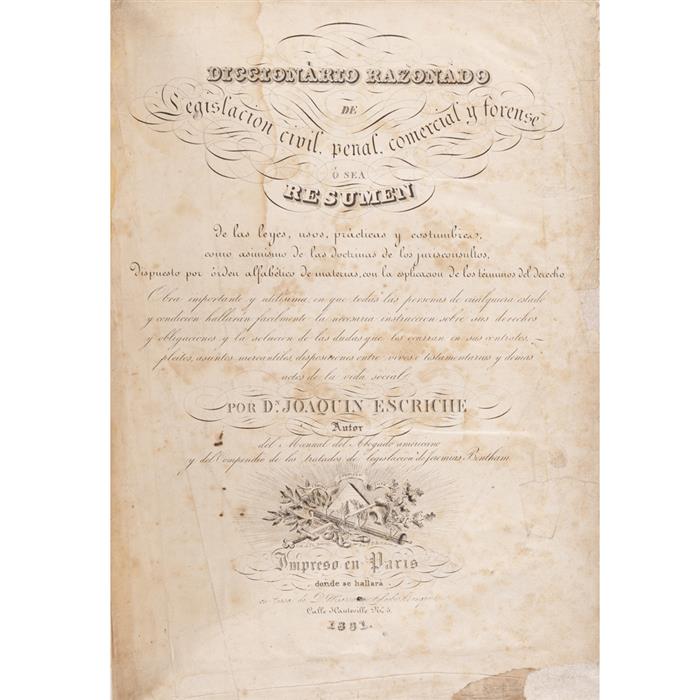 DICCIONÀRIO RAZONADO
DE
Legislacion civil, penal, comercial y forense
Ó SEA
RESUMEN
de las leyes, usos, prácticas y costumbres,
como asimismo de las doctrinas de los jurisconsultos,
Dispuesto por órden alfabético de materias, con la esplicacion de los términos del derecho
Obra importante y utilísima, en que todas las personas de cualquiera estado
y condicion hallarán facilmente la necesaria instruccion sobre sus derechos
y obligaciones y la solucion de las dudas que les ocurran en sus contratos,
pleitos, asuntos mercantiles, disposiciones entre vivos ó testamentarias y demas
actos de la vida social
POR Dn. JOAQUIN ESCRICHE
Autor
del Manual del Abogado americano
y del Compendio de los tratados de legislacion de Jeremias Bentham
Impreso en Paris
donde se hallará
en casa de D.
Calle Hauteville No. 5.
1831.